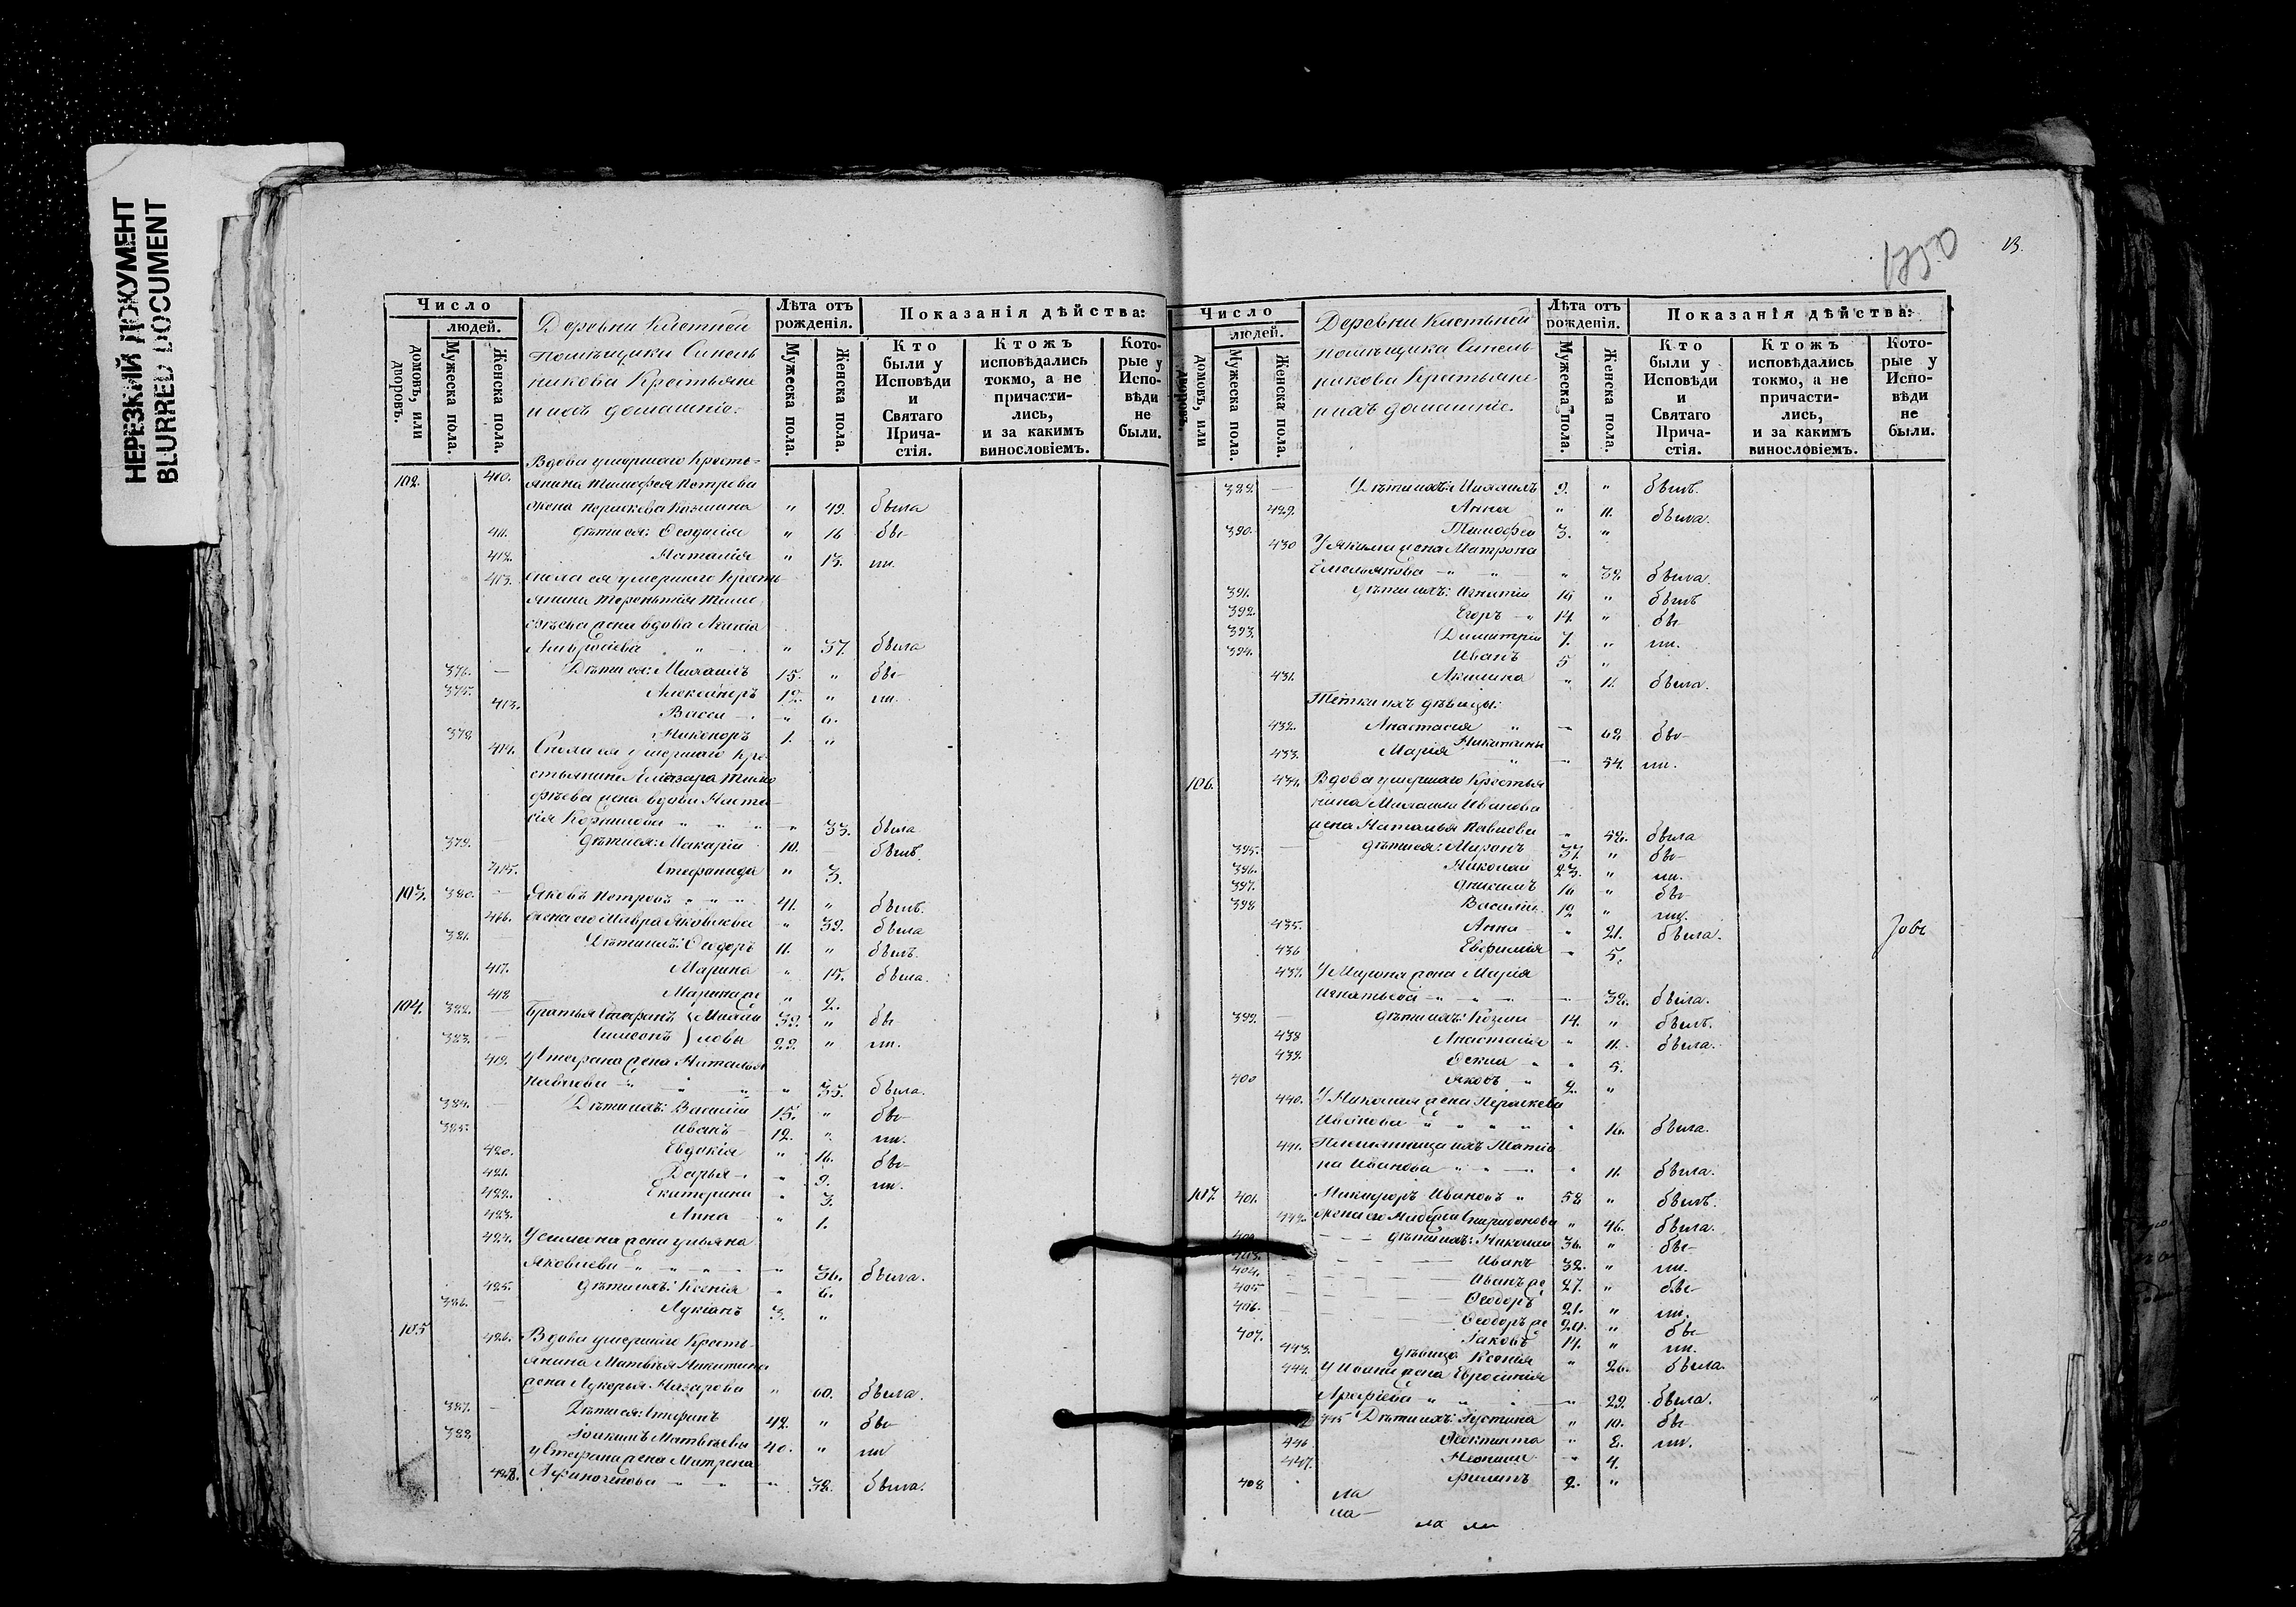 НЕРЕЗКИЙ ДОКУМЕНТ
BLURRED DOCUMENT
Число
людей.
домовъ, или дворовъ.
Мужеска пола.
Женска пола.
Деревни
помѣщика Синель
никова Крестьяне
и ихъ домашніе.
Лѣта отъ рожденія.
Мужеска пола.
Женска пола.
Показанія дѣйства:
Кто были у Исповѣди и Святаго Причастія.
Ктожъ исповѣдались токмо, а не причастились, и за какимъ винословіемъ.
Которые у Исповѣди не были.
102. 410. Вдова умершаго Кресть-
янина Тимофея Петрова
жена Параскева Козмина " 49. была
411. дѣти ея: Феодосія " 16 бы-
412. Наталія " 13. ли.
413. сноха ея умершаго Кресть
янина Терентія Тимо
фѣева жена вдова
" 37. была
376. — Дѣти ея: Михаилъ 15. " бы-
375. Александръ 12. " ли.
413. Васса " 6.
378 Никаноръ 1. "
414. Сноха ея умершаго Кре
стьянина Елиазара Тимо
фѣева жена вдова Наста
сія Корнилова " 33. была
379. дѣти ея: Макарій 10. былъ.
415. Стефанида " 3.
103. 380. — Яковъ Петровъ 41. " былъ.
416. жена его Мавра Яковлева " 39. была
381. Дѣти ихъ: Сидоръ 11. " былъ.
417. Марина " 15. была.
418 Марина же " 2.
104. 382. — Братья Стефанъ } Михай 39. " бы
383. — Симеонъ } ловы 29. " ли.
419. у Стефана жена Наталья
Павлова " 35. была.
384. — Дѣти ихъ: Василій 15. " бы-
385. Иванъ 12. " ли.
420. Евдокія " 16. бы-
421. Дарья " 9. ли.
422. Екатерина " 3.
423. Анна " 1.
424. У Симеона жена Ульяна
Яковлева " 36. была.
425. дѣти ихъ: Ксенія " 6.
386. — Лукіанъ 3. "
105 426. Вдова умершаго Кресть-
янина Матвѣя Никитина
жена Лукерья Назарова " 60. была.
387. — Дѣти ея: Стефанъ 42. " бы-
388 Іоакимъ Матвѣевы 40. " ли
у Стефана жена Матрена
428. Афиногенова " 38. была.
1750
13.
Число
людей.
домовъ, или дворовъ.
Мужеска пола.
Женска пола.
Деревни
помѣщика Синель-
никова Крестьяне
и ихъ домашніе.
Лѣта отъ рожденія.
Мужеска пола.
Женска пола.
Показанія дѣйства:
Кто были у Исповѣди и Святаго Причастія.
Ктожъ исповѣдались токмо, а не причастились, и за какимъ винословіемъ.
Которые у Исповѣди не были.
389. — Дѣти ихъ: Михаилъ 9. " былъ.
429. Анна " 11. была.
390. Тимофей 3. "
430 У Якима жена Матрона
Емельянова " 38. была.
391. дѣти ихъ: Игнатій 16 " былъ
392. Егоръ 14. " бы-
393. Димитрій 7. " ли.
394. Иванъ 5 "
431. Акилина " 11. была.
Тётки ихъ дѣвицы:
432. Анастасія " 62. бы-
433. Марія Никитины 54. ли.
106. 434. Вдова умершаго Крестья
нина Михаила Иванова
жена Наталья Павлова " 58. была
395. — дѣти ея: Миронъ 37. " бы-
396. Николай 23. " ли.
397. 16 " бы
398 Василій 12 " ли.
435. Анна " 21. была.
436 Евфимія " 5.
437. У Мирона жена Марія
Игнатьева 38. была.
399. — дѣти ихъ: Козма 14. " былъ.
438 Анастасія " 11. была.
439. Фекла " 5.
400 Яковъ 2. "
440. У Николая жена Параскева
Иванова " 16. была.
441. Племянница ихъ Татіа
на Иванова " 11. была.
107. 401. Никифоръ Ивановъ 58 " былъ.
442. Жена его Надежда Спиридонова " 46. была.
дѣти ихъ: Николай 36. " бы-
403. Иванъ 32. " ли.
404. Иванъ же 27. " бы-
405 Феодоръ 21. " ли.
406. Феодоръ же 20. " бы-
407. Іаковъ 14. " ли.
443. дѣвица Ксенія " 26. была.
444. жена Евфросинія
" 29. была.
445 Дѣти ихъ: Іустина " 10. бы-
446. Феоктиста " 8. ли.
447. " 4.
408 Филипъ 2. "
ла
ла-
ла ли